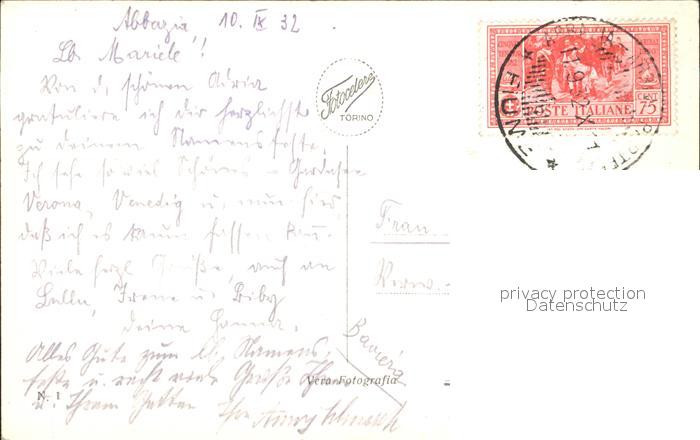 Abbazia 10. IX 32
Lb. Mariele!
Von d. schönen Adria
gratuliere ich dir herzlichst
zu deinem Namensfeste.
Ich sehe so viel Schönes - Gardasee
Verona, Venedig u. nun hier,
daß ich es kaum fassen kann.
Viele herzl Grüße, auch an
Lullu, Irene u. Biby
deine Hanna.
Alles Gute zum lb. Namens-
feste u. recht viele Grüße Ihnen
u. Ihrem Gatten Ihre
Fotocelere
TORINO
POSTE ITALIANE
CENT 75
FIUME
Frau
Baviera
Vera Fotografia
N. 1
privacy protection
Datenschutz